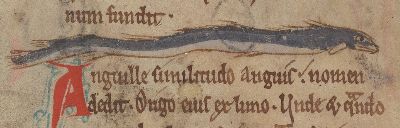 num fundit.
Anguille similitudo anguis nomen
dedit. Origo eius ex limo. Unde & qũdo